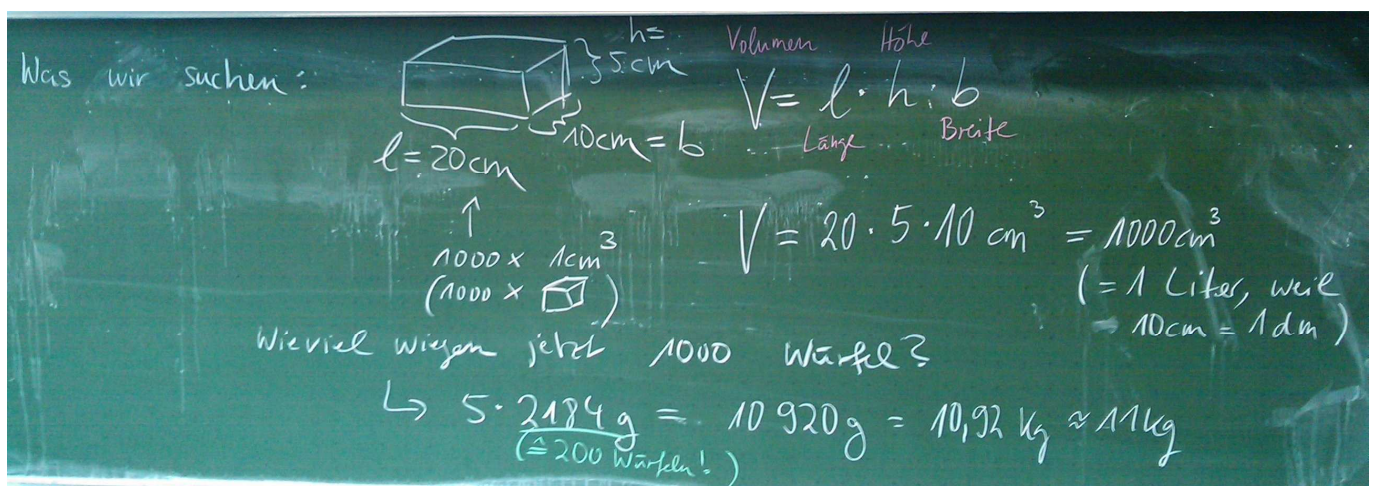 Was wir suchen:
h=
5cm
10cm = b
l = 20cm
↑
1000 × 1cm³
(1000 × )
Volumen Höhe
V = l · h · b
Länge Breite
V = 20 · 5 · 10 cm³ = 1000cm³
(= 1 Liter, weil
10cm = 1dm)
Wieviel wiegen jetzt 1000 Würfel?
↳ 5 · 2184g = 10 920g = 10,92 kg ≈ 11kg
(≙ 200 Würfeln!)